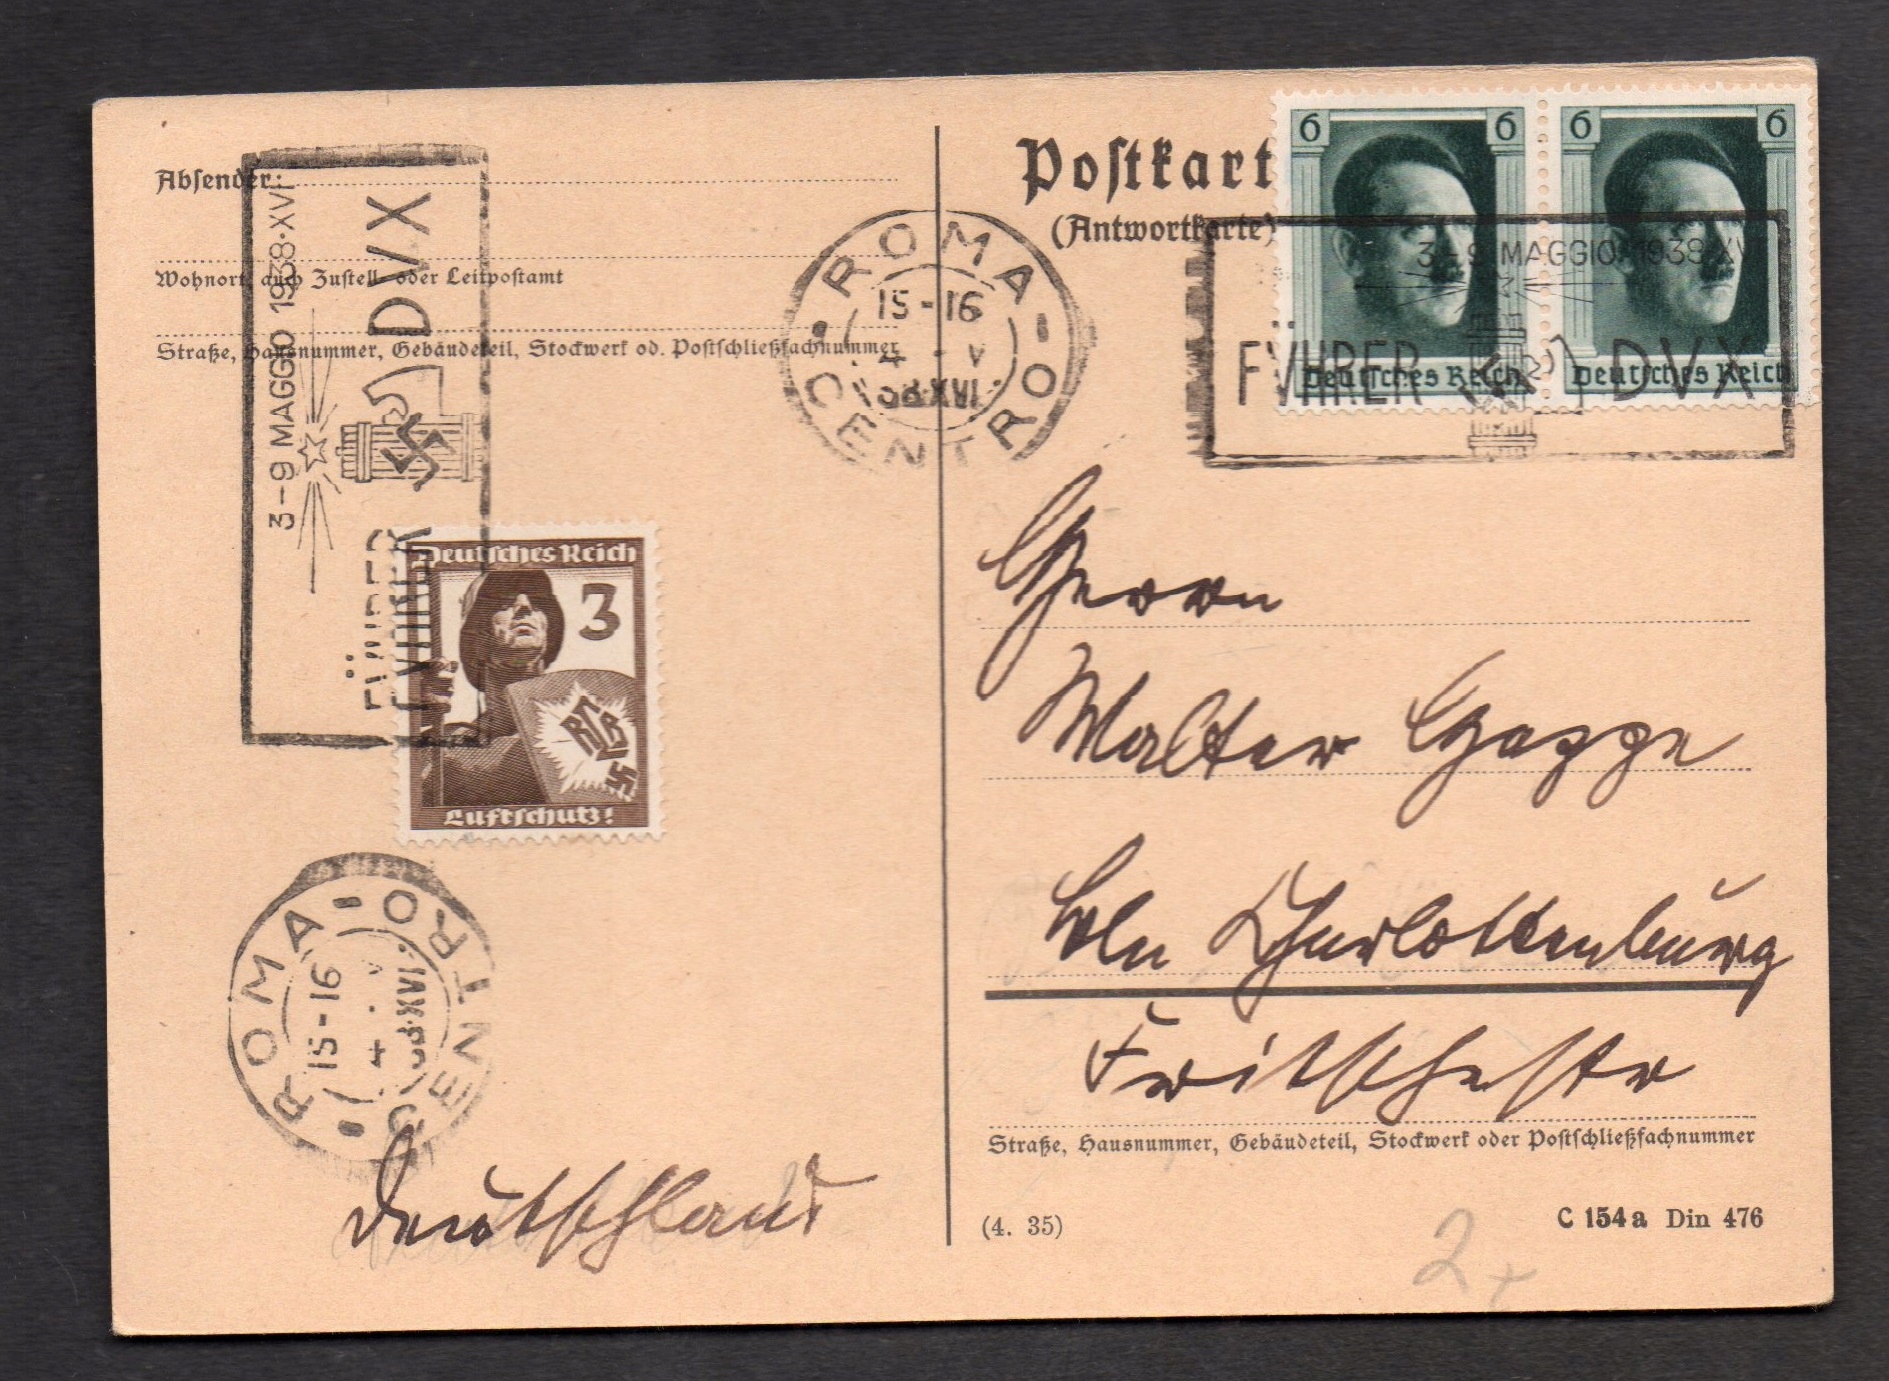 Absender:
Wohnort, auch Zustell- oder Leitpostamt
Straße, Hausnummer, Gebäudeteil, Stockwerk od. Postschließfachnummer
3-9 MAGGIO 1938·XVI
FÜHRER DVX
Deutsches Reich
3
RLB
Luftschutz!
ROMA CENTRO
15-16
4 · V
38·XVI·
Deutschland
Postkart
(Antwortkarte)
6 6
Deutsches Reich
6 6
Deutsches Reich
ROMA CENTRO
15-16
4 - V
XVI·
3-9 MAGGIO 1938·XVI
FÜHRER DVX
Herrn
Walter
Bln Charlottenburg
Fritschestr
Straße, Hausnummer, Gebäudeteil, Stockwerk oder Postschließfachnummer
(4. 35)
C 154a Din 476
2